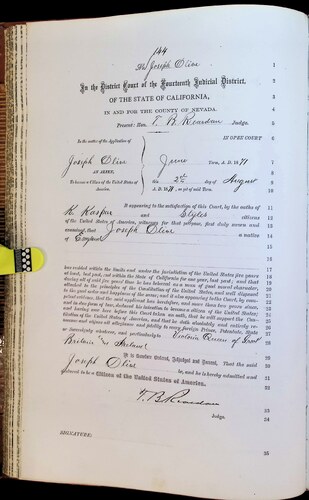 144
The Joseph Oliver 1
In the District Court of the Fourteenth Judicial District, 2
OF THE STATE OF CALIFORNIA, 3
IN AND FOR THE COUNTY OF NEVADA. 4
Present: Hon. T. B. Reardan Judge. 5
6
In the matter of the Application of IN OPEN COURT 7
Joseph June Term, A. D. 1871 8
AN ALIEN, this day of August 9
To become a Citizen of the United States of America. A. D. 1871, as yet of said Term. 10
11
It appearing to the satisfaction of this Court, by the oaths of 12
K. Kasper and Styles citizens 13
of the United States of America, witnesses for that purpose, first duly sworn and 14
examined, that Joseph a native 15
of England 16
has resided within the limits and under the jurisdiction of the United States five years
at least, last past, and within the State of California for one year, last past; and that
during all of said five years' time he has behaved as a man of good moral character,
attached to the principles of the Constitution of the United States, and well disposed
to the good order and happiness of the same; and it also appearing to the Court, by
evidence, that the said applicant has heretofore, and more than two years since,
and in due form of law, declared his intention to become a citizen of the United States;
and having now here before this Court taken an oath, that he will support the
Constitution of the United States of America, and that he doth absolutely and entirely
renounce and abjure all allegiance and fidelity to every foreign Prince, Potentate, State
or Sovereignty whatever, and particularly to Victoria Queen of Great
Britain and Ireland
It is therefore Ordered, Adjudged and Decreed, That the said
Joseph be, and he is hereby admitted and
declared to be a Citizen of the United States of America.
T. B. Reardan
Judge.
SIGNATURE: